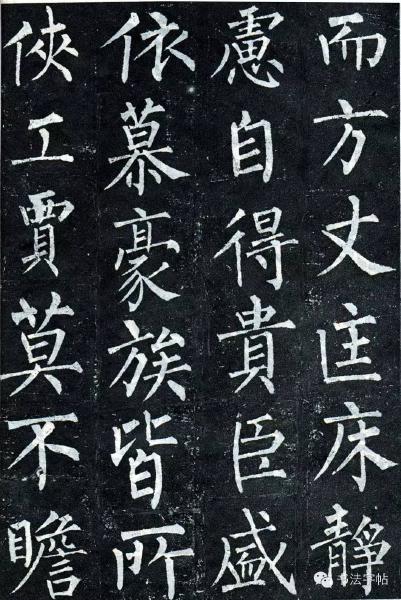 而方丈匡床靜
慮自得貴臣盛
依慕豪族皆所
俠工賈莫不瞻
书法字帖